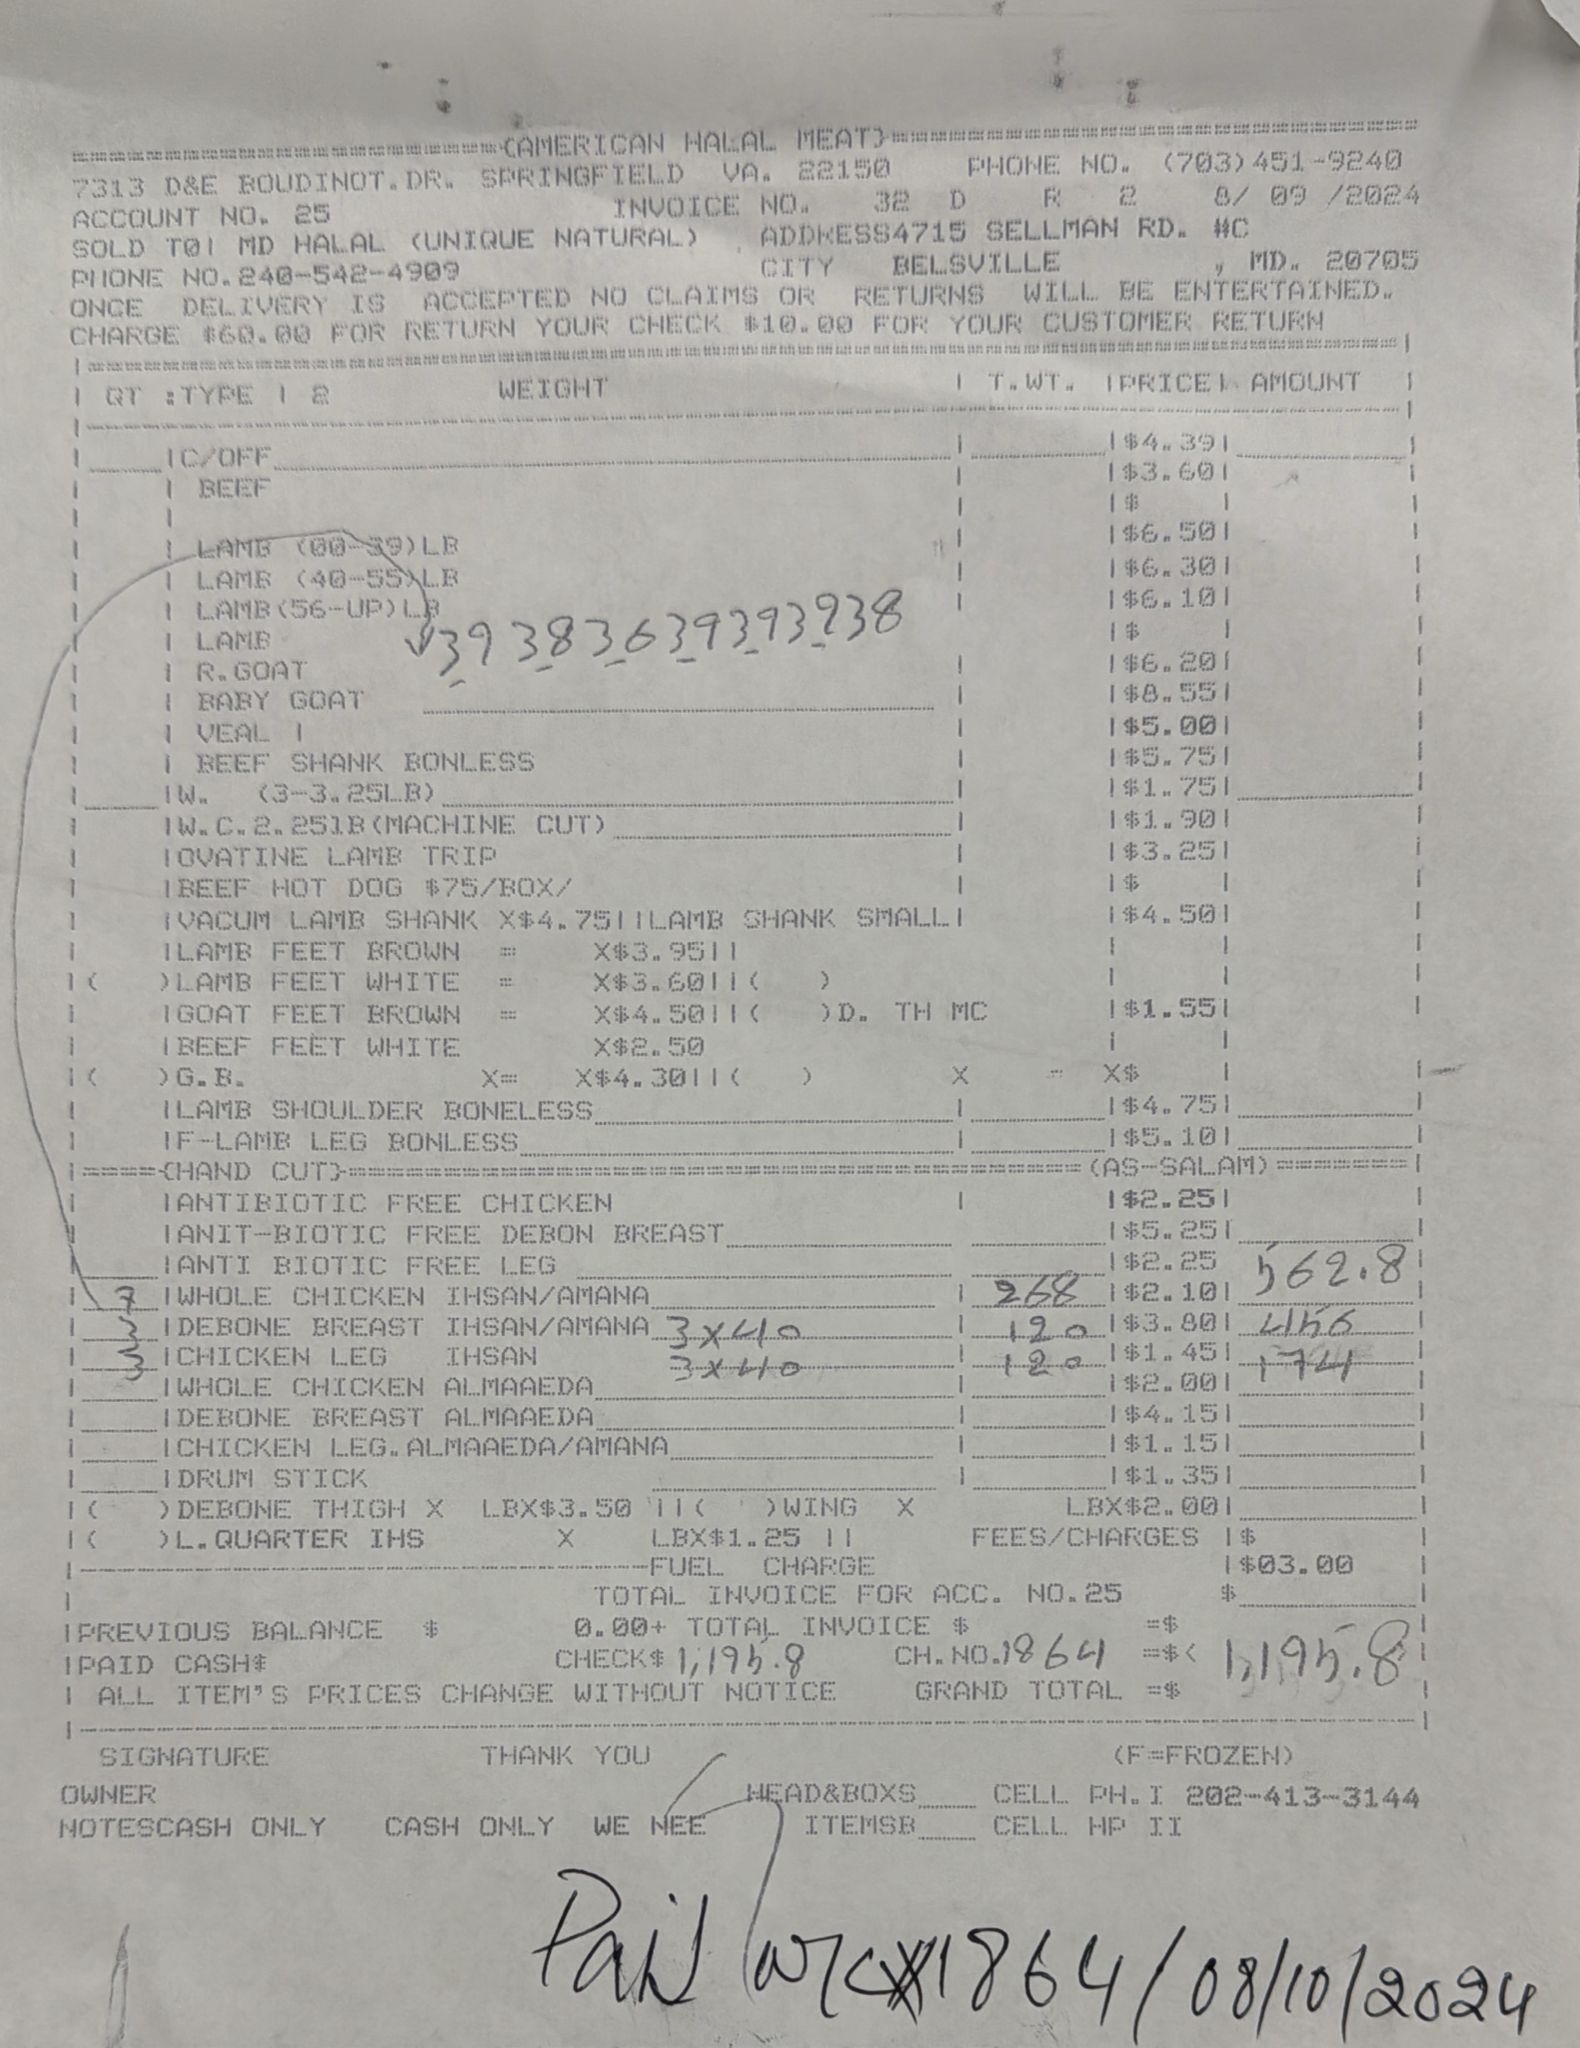 ================================{AMERICAN HALAL MEAT}================================
7313 D&E BOUDINOT.DR. SPRINGFIELD VA. 22150 PHONE NO. (703)451-9240
ACCOUNT NO. 25 INVOICE NO. 32 D R 2 8/ 09 /2024
SOLD TO| MD HALAL (UNIQUE NATURAL) ADDRESS4715 SELLMAN RD. #C
PHONE NO.240-542-4909 CITY BELSVILLE , MD. 20705
ONCE DELIVERY IS ACCEPTED NO CLAIMS OR RETURNS WILL BE ENTERTAINED.
CHARGE $60.00 FOR RETURN YOUR CHECK $10.00 FOR YOUR CUSTOMER RETURN
| QT :TYPE | 2 WEIGHT | T.WT. |PRICE| AMOUNT |
|C/OFF | |$4.39|
| BEEF |$3.60|
|$ |
| LAMB (00-39)LB |$6.50|
| LAMB (40-55)LB |$6.30|
| LAMB(56-UP)LB |$6.10|
| LAMB |$ |
39 38 36 39 39 39 38
| R.GOAT |$6.20|
| BABY GOAT |$8.55|
| VEAL | |$5.00|
| BEEF SHANK BONLESS |$5.75|
|W. (3-3.25LB) |$1.75|
|W.C.2.251B(MACHINE CUT) |$1.90|
|OVATINE LAMB TRIP |$3.25|
|BEEF HOT DOG $75/BOX/ |$ |
|VACUM LAMB SHANK X$4.75||LAMB SHANK SMALL| |$4.50|
|LAMB FEET BROWN = X$3.95||
|( )LAMB FEET WHITE = X$3.60||( )
|GOAT FEET BROWN = X$4.50||( )D. TH MC |$1.55|
|BEEF FEET WHITE X$2.50
|( )G.B. X= X$4.30||( ) X = X$ |
|LAMB SHOULDER BONELESS |$4.75|
|F-LAMB LEG BONLESS |$5.10|
|===={HAND CUT}======================================(AS-SALAM)=======|
|ANTIBIOTIC FREE CHICKEN |$2.25|
|ANIT-BIOTIC FREE DEBON BREAST |$5.25|
|ANTI BIOTIC FREE LEG |$2.25
7 |WHOLE CHICKEN IHSAN/AMANA 268 |$2.10| 562.8
3 |DEBONE BREAST IHSAN/AMANA 3x40 120 |$3.80| 456
3 |CHICKEN LEG IHSAN 3x40 120 |$1.45| 174
|WHOLE CHICKEN ALMAAEDA |$2.00|
|DEBONE BREAST ALMAAEDA |$4.15|
|CHICKEN LEG.ALMAAEDA/AMANA |$1.15|
|DRUM STICK |$1.35|
|( )DEBONE THIGH X LBX$3.50 ||( )WING X LBX$2.00|
|( )L.QUARTER IHS X LBX$1.25 || FEES/CHARGES |$
|------------------------------FUEL CHARGE |$03.00
TOTAL INVOICE FOR ACC. NO.25 $
|PREVIOUS BALANCE $ 0.00+ TOTAL INVOICE $ =$
|PAID CASH$ CHECK$ 1,195.8 CH.NO.1864 =$< 1,195.8
| ALL ITEM'S PRICES CHANGE WITHOUT NOTICE GRAND TOTAL =$
SIGNATURE THANK YOU (F=FROZEN)
OWNER HEAD&BOXS CELL PH.I 202-413-3144
NOTESCASH ONLY CASH ONLY WE NEE ITEMSB CELL HP II
Paid 1864/08/10/2024